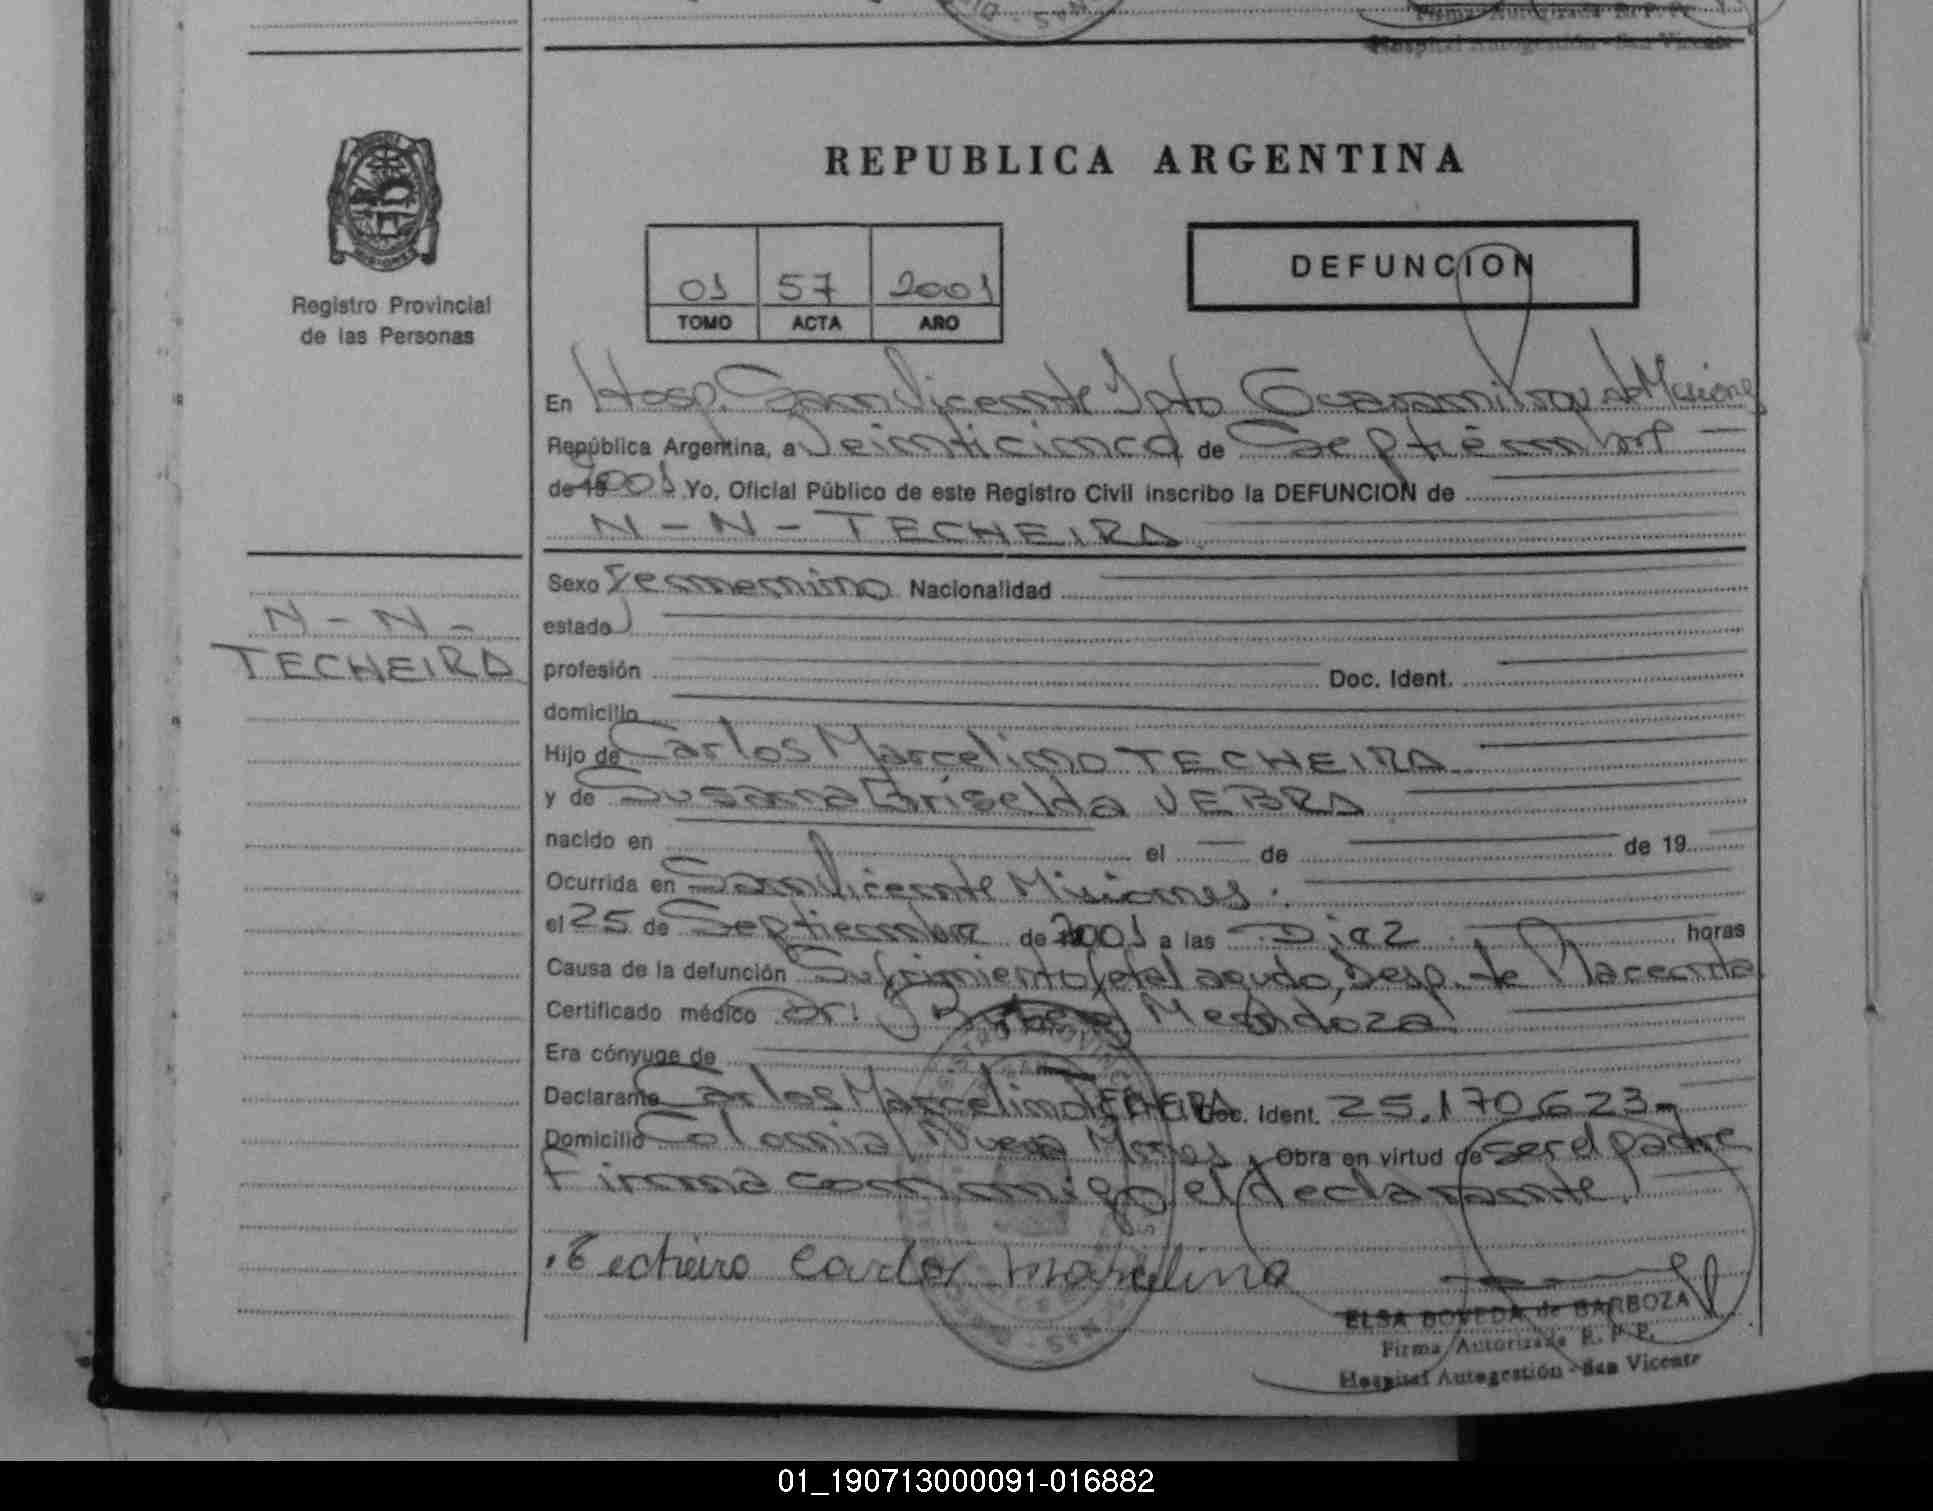 Firma Autorizada R. P. P.
Hospital Autogestión - San Vicente
REPUBLICA ARGENTINA
Registro Provincial
de las Personas
01 57 2001
TOMO ACTA AÑO
DEFUNCION
En Hosp. San Vicente Dpto Guaraní Misiones
República Argentina, a Veinticinco de Septiembre
de 2001 Yo, Oficial Público de este Registro Civil inscribo la DEFUNCION de
N - N - TECHEIRA
N - N -
TECHEIRA
Sexo Femenino Nacionalidad
estado
profesión Doc. Ident.
domicilio
Hijo de Carlos Marcelino TECHEIRA
y de Susana Griselda VEBRA
nacido en el de de 19
Ocurrida en San Vicente Misiones.
el 25 de Septiembre de 2001 a las Diez horas
Causa de la defunción Sufrimiento fetal agudo, Desp. de Placenta
Certificado médico Dr. Mendoza
Era cónyuge de
Declarante Carlos Marcelino TECHEIRA Doc. Ident. 25.170.623
Domicilio Colonia Nueva Obra en virtud de ser el padre
Firma conmigo el declarante.
Techeira Carlos Marcelino
ELSA BOVEDA de BARBOZA
Firma Autorizada R. P. P.
Hospital Autogestión - San Vicente
01_190713000091-016882